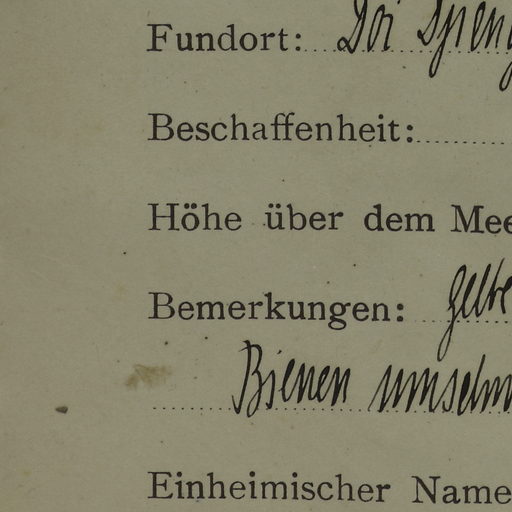 Fundort: Doi
Beschaffenheit:
Höhe über dem Mee
Bemerkungen: gelbe
Bienen umschw
Einheimischer Name